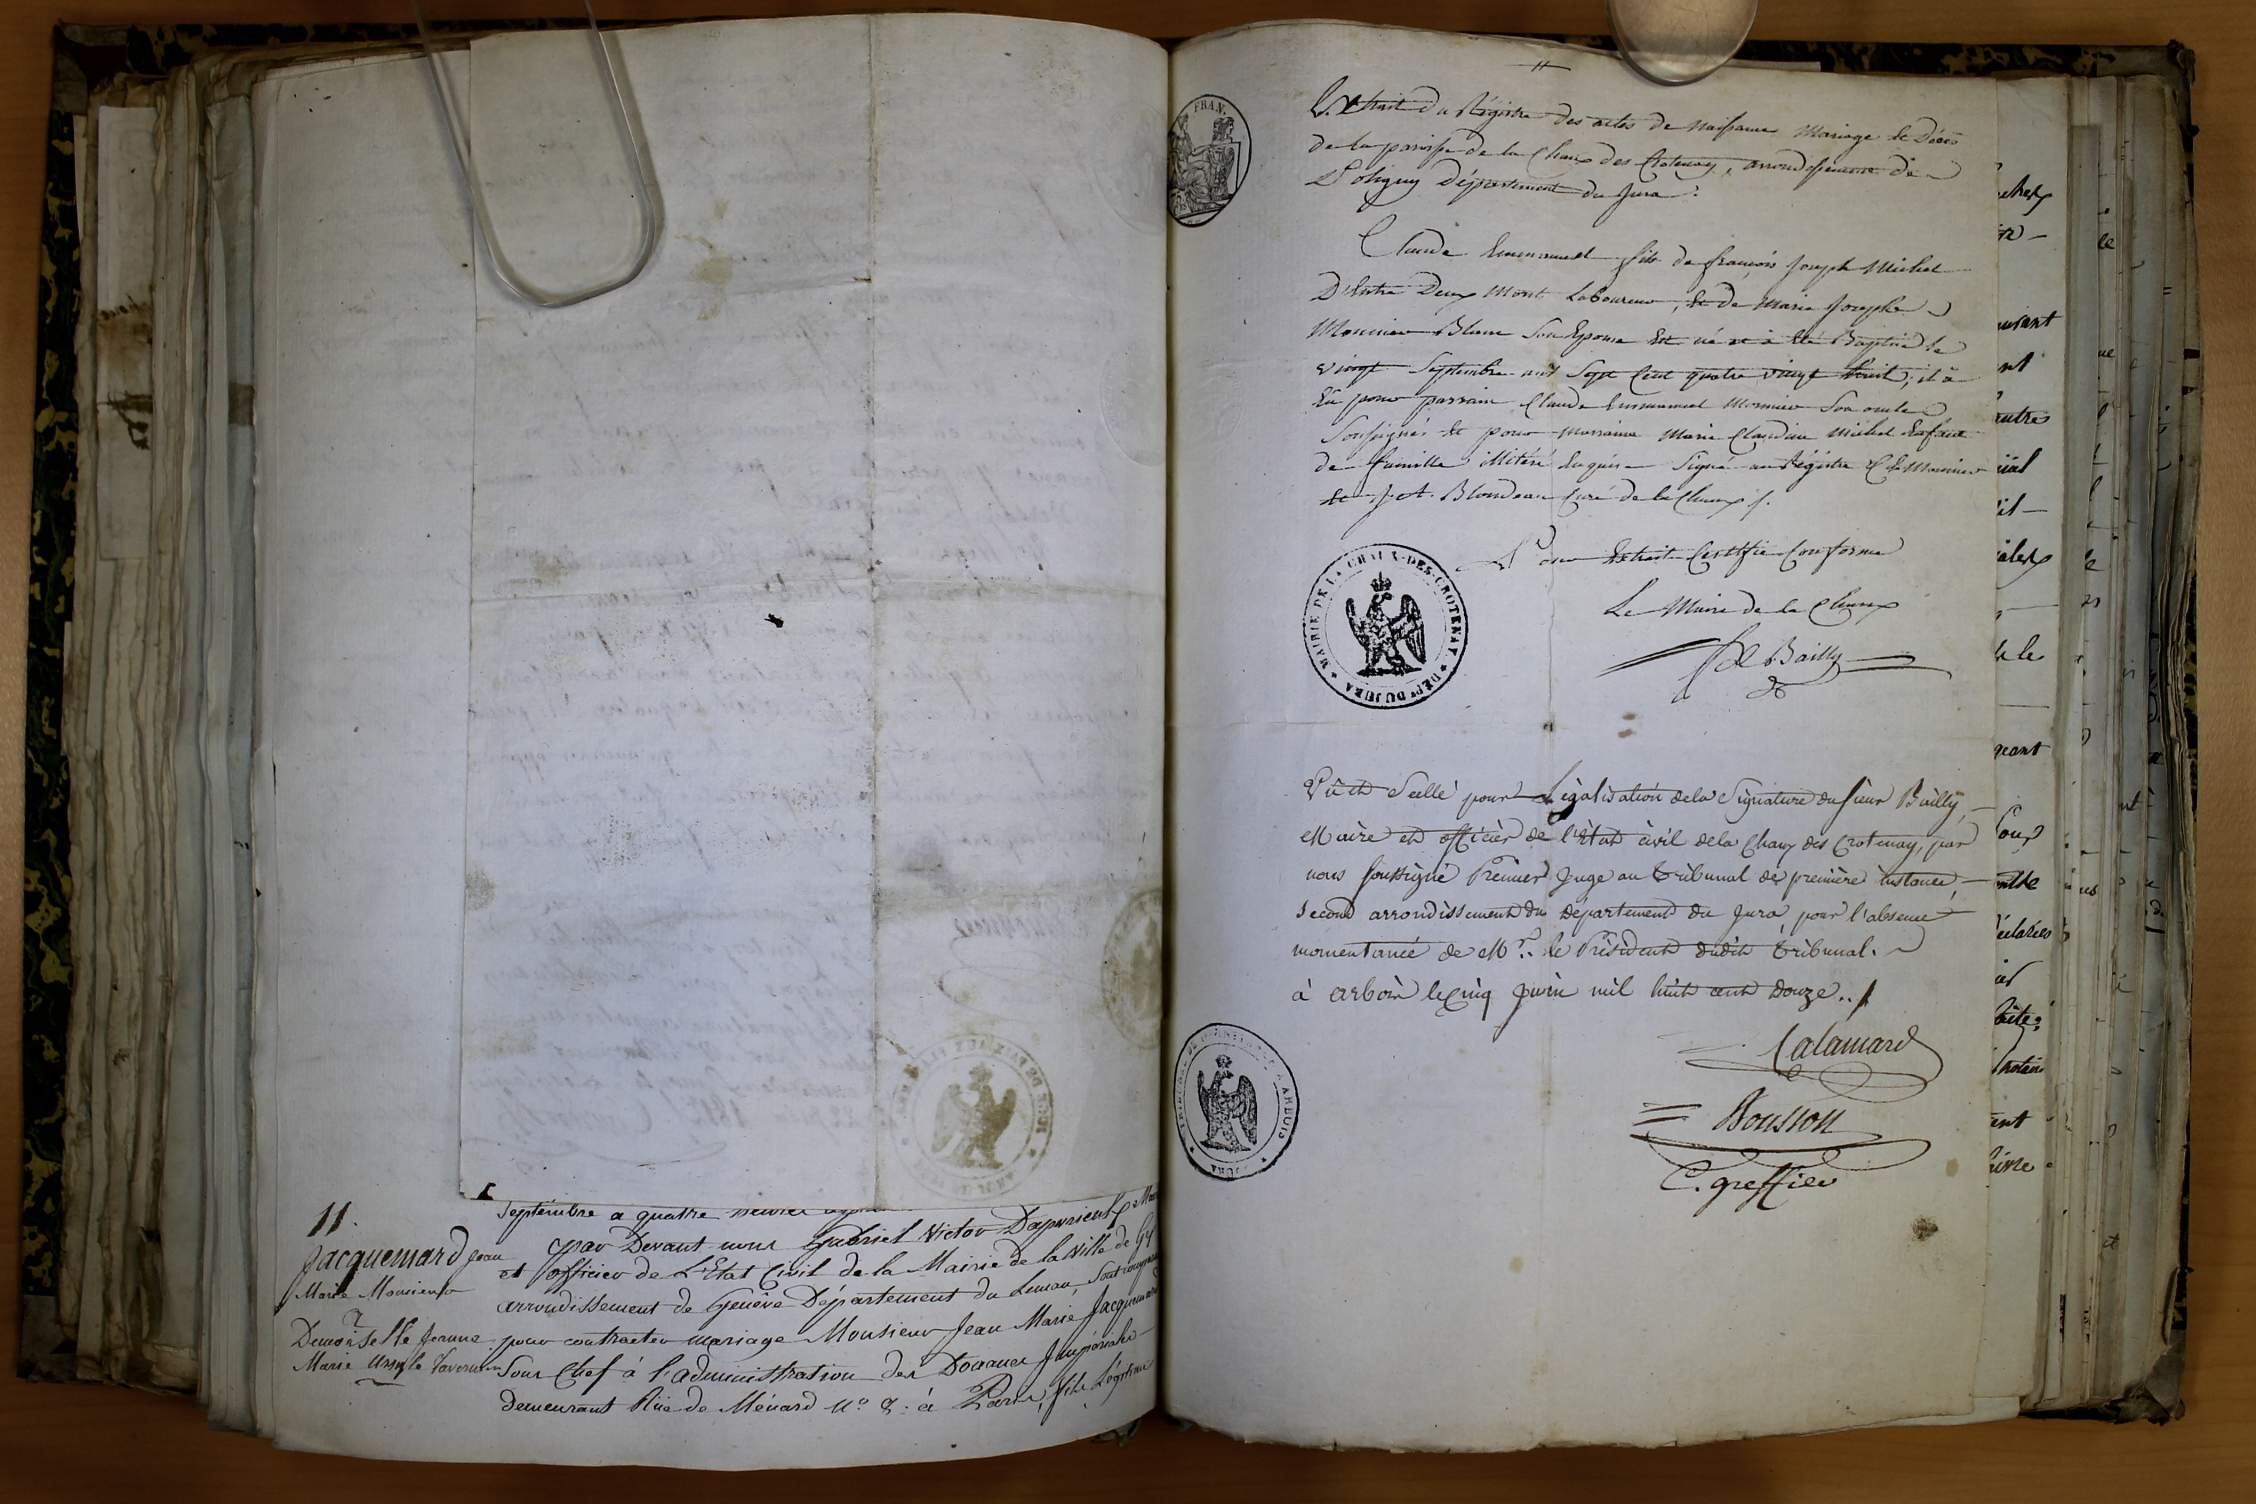 11.
Jacquemard Jean
Marie Monsieur
Demoiselle Jeanne
Marie Ursule Tavernier
Septembre a quatre heures
par Devant nous Gabriel Victor
et officier de L'Etat Civil de la Mairie de la Ville de
arrondissement de Genève Département du Léman, Sont
pour contracter mariage Monsieur Jean Marie Jacquemard
Sous Chef à l'administration des Douanes Impériales
demeurant Rüe de Ménard N° 8. à Paris, fils Légitime
11
FRAN
Extrait du Régistre des actes de Naissance Mariage et Décès
de la paroisse de la Chaux des Crotenay, arrondissement de
Poligny Département du Jura.
Claude Emmanuel fils de françois Joseph Michel
D'Entre Deux Mont Laboureur, et de Marie Josephe
Monnier Blanc Son Epouse Est né et à été Baptisé le
vingt Septembre mil Sept Cent quatre vingt huit; il a
Eu pour parrain Claude Emmanuel Monnier Son oncle
Soussigné et pour marraine Marie Claudine Michel Enfant
de famille illitéré Enquise Signé au Régistre C E Monnier
et J. A. Blondeau Curé de la Chaux /.
Pour Extrait Certifié Conforme
Le Maire de la Chaux
Bailly
MAIRIE DE LA CHAUX-DES-CROTENAY. DÉPt DU JURA
Vû et Scellé pour Légalisation de la Signature du sieur Bailly,
Maire et officier de l'état civil de la Chaux des Crotenay, par
nous soussigné Premier Juge au Tribunal de première instance,
second arrondissement du Département du Jura, pour l'absence
momentanée de Mr. le Président dudit Tribunal.
à arbois le Cinq Juin mil huit cent douze../.
Calamard
Bousson
C. greffier
ARBOIS JURA